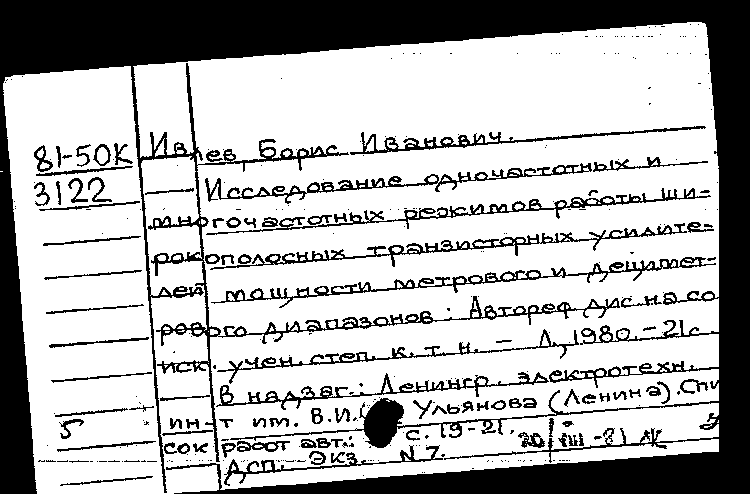 81-50К Ивлев, Борис Иванович.
3122 Исследование одночастотных и
многочастотных режимов работы ши-
рокополосных транзисторных усилите-
лей мощности метрового и дециmet-
рового диапазонов: Автореф дис на со
иск. учен. степ. к. т. н. - Л., 1980. - 21с.
В надзаг.: Ленингр. электротехн.
5 ин-т им. В.И. Ульянова (Ленина). Спи
сок работ авт.: с. 19-21.
ДСП. Экз. N 7. 20 III -81